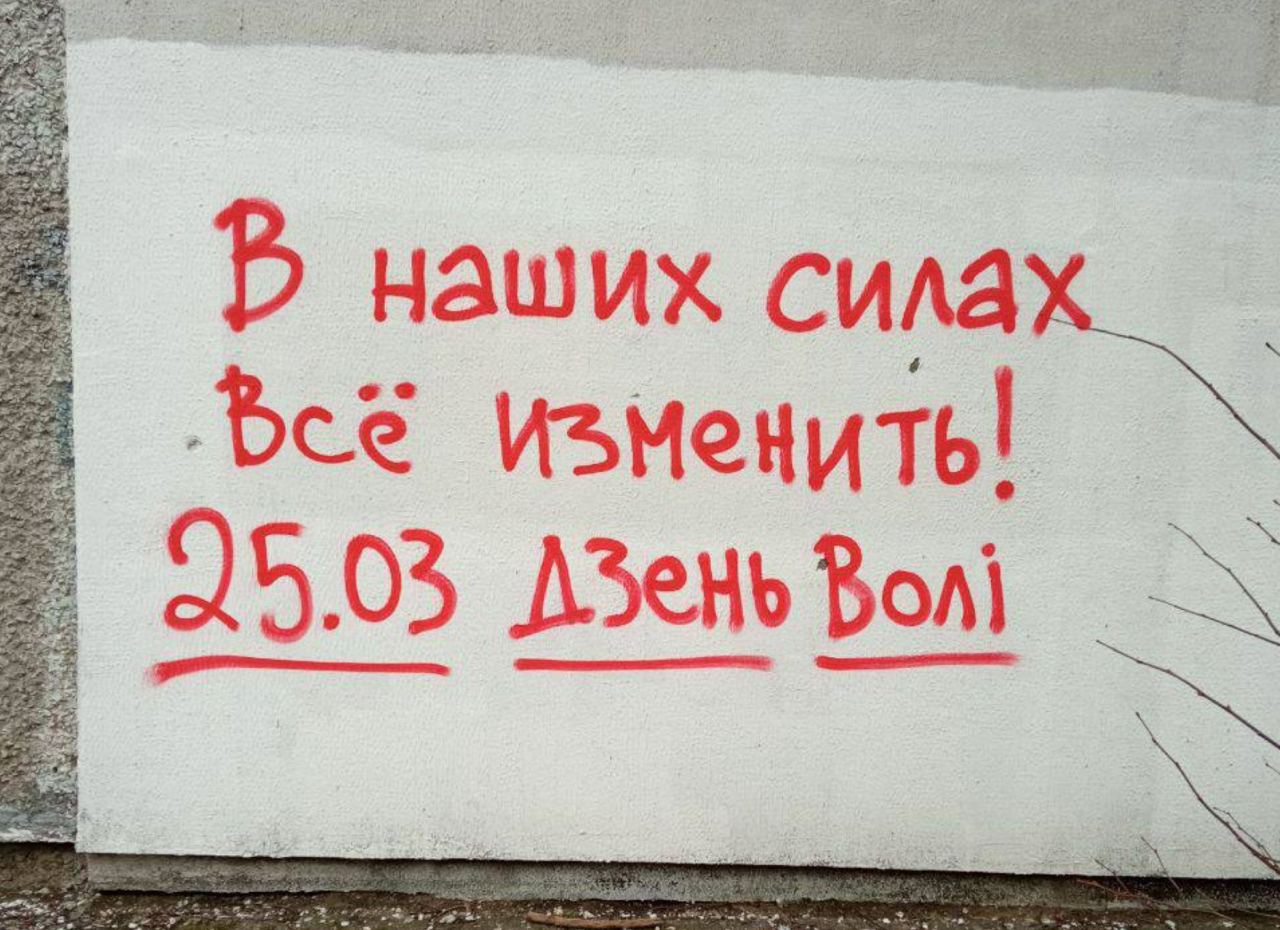 В наших силах
всё изменить!
25.03 Дзень Волі